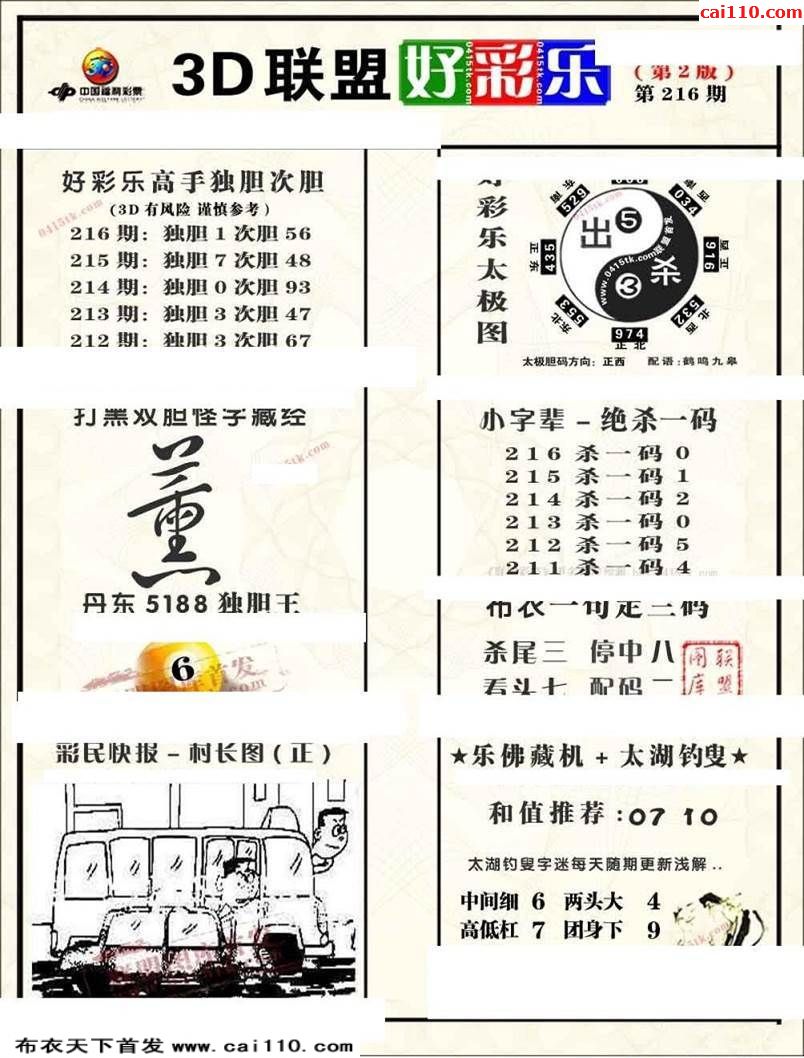 cai110.com
中国福利彩票
CHINA WELFARE LOTTERY
3D联盟好彩乐
(第2版)
第216期
好彩乐高手独胆次胆
(3D有风险 谨慎参考)
216期: 独胆1次胆56
215期: 独胆7次胆48
214期: 独胆0次胆93
213期: 独胆3次胆47
212期: 独胆3次胆67
打黑双胆怪字藏经
薰
丹东5188独胆王
6
彩民快报-村长图(正)
布衣天下首发 www.cai110.com
好彩乐太极图
529
034
正东
435
出
5
杀
3
916
正西
www.0415tk.com联盟首发
东北
553
974
正北
532
西北
太极胆码方向: 正西 配语:鹤鸣九皋
小字辈-绝杀一码
216杀一码0
215杀一码1
214杀一码2
213杀一码0
212杀一码5
211杀一码4
布衣一句定三码
杀尾三 停中八
看头七 配码二
联盟图库
★乐佛藏机+太湖钓叟★
和值推荐:07 10
太湖钓叟字迷每天随期更新浅解..
中间细 6 两头大 4
高低杠 7 团身下 9